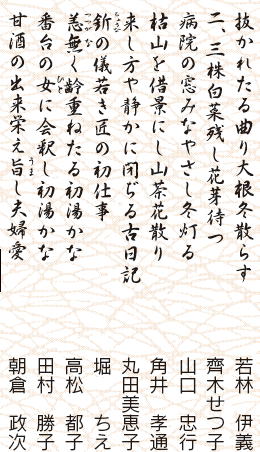 抜かれたる曲り大根冬散らす 若林 伊義
二、三株白菜残し花芽待つ 齊木せつ子
病院の窓みなやさし冬灯る 山口 忠行
枯山を借景にし山茶花散り 角井 孝通
来し方や静かに閉ぢる古日記 丸田美恵子
釿の儀若き匠の初仕事 堀 ちえ
恙無く齢重ねたる初湯かな 高松 都子
番台の女に会釈し初湯かな 田村 勝子
甘酒の出来栄え旨し夫婦愛 朝倉 政次